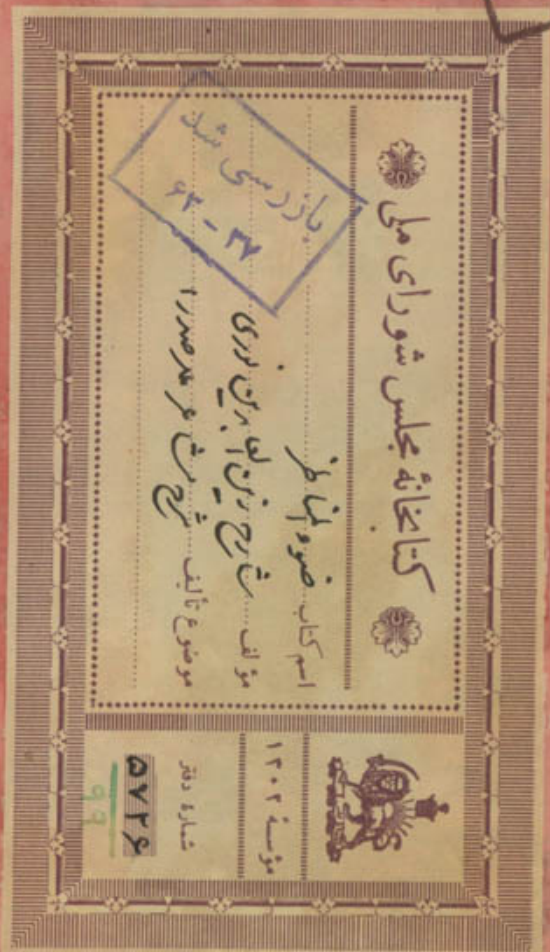 کتابخانهٔ مجلس شورای ملی
اسم کتاب ضوء المناظر
مؤلف شارح زین العابدین نوری
موضوع تألیف شرح مشاعر صدرا
بازرسی شد
۶۳ - ۳۷
مؤسسهٔ ۱۳۰۲
شمارهٔ دفتر
۵۷۲۶
۹۹